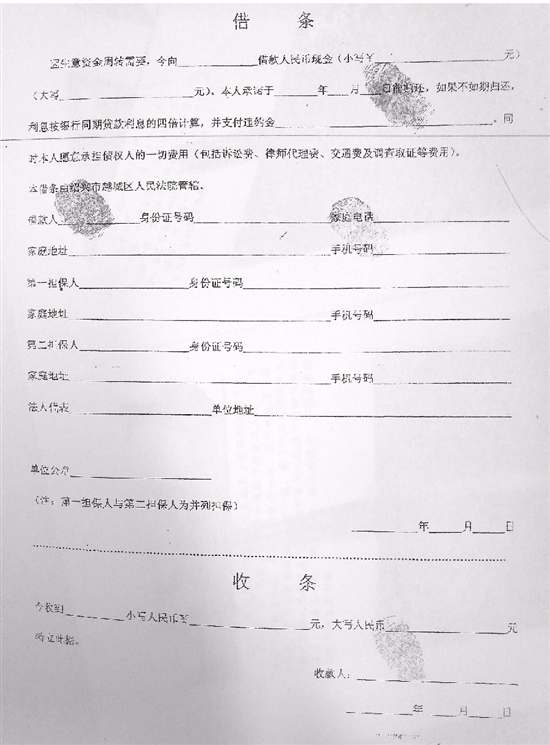 借 条
因生意资金周转需要，今向________借款人民币现金（小写￥________元）
（大写________元），本人承诺于____年__月__日前归还，如果不如期归还，
利息按银行同期贷款利息的四倍计算，并支付违约金________。同
时本人愿意承担债权人的一切费用（包括诉讼费、律师代理费、交通费及调查取证等费用）。
本借条由绍兴市越城区人民法院管辖。
借款人________身份证号码________家庭电话________
家庭地址________手机号码________
第一担保人________身份证号码________
家庭地址________手机号码________
第二担保人________身份证号码________
家庭地址________手机号码________
法人代表________单位地址________
单位公章________
（注：第一担保人与第二担保人为并列担保）
____年__月__日
收 条
今收到________小写人民币￥________元，大写人民币________元
特立此据。
收款人：________
____年__月__日